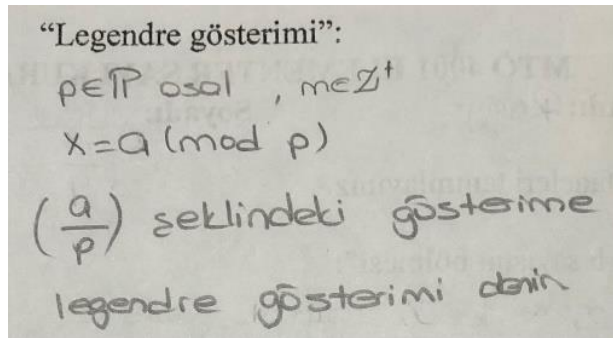 “Legendre gösterimi”:
p∈ℙ asal , m∈ℤ⁺
x=a (mod p)
(a/p) şeklindeki gösterime
legendre gösterimi denir